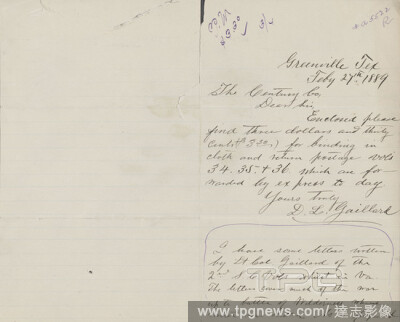 Greenville Tex
Feby 27th 1889
The Century Co,
Dear Sir,
Enclosed please
find three dollars and thirty
cents ($3.30) for binding in
cloth and return postage vols
34. 35. & 36 which are for-
warded by express to day
Yours truly
D. L. Gaillard
I have some letters written
by Lt Col Gaillard of the
2nd S. C.
The letters
up to battle of
TPG
www.tpgnews.com / 達志影像